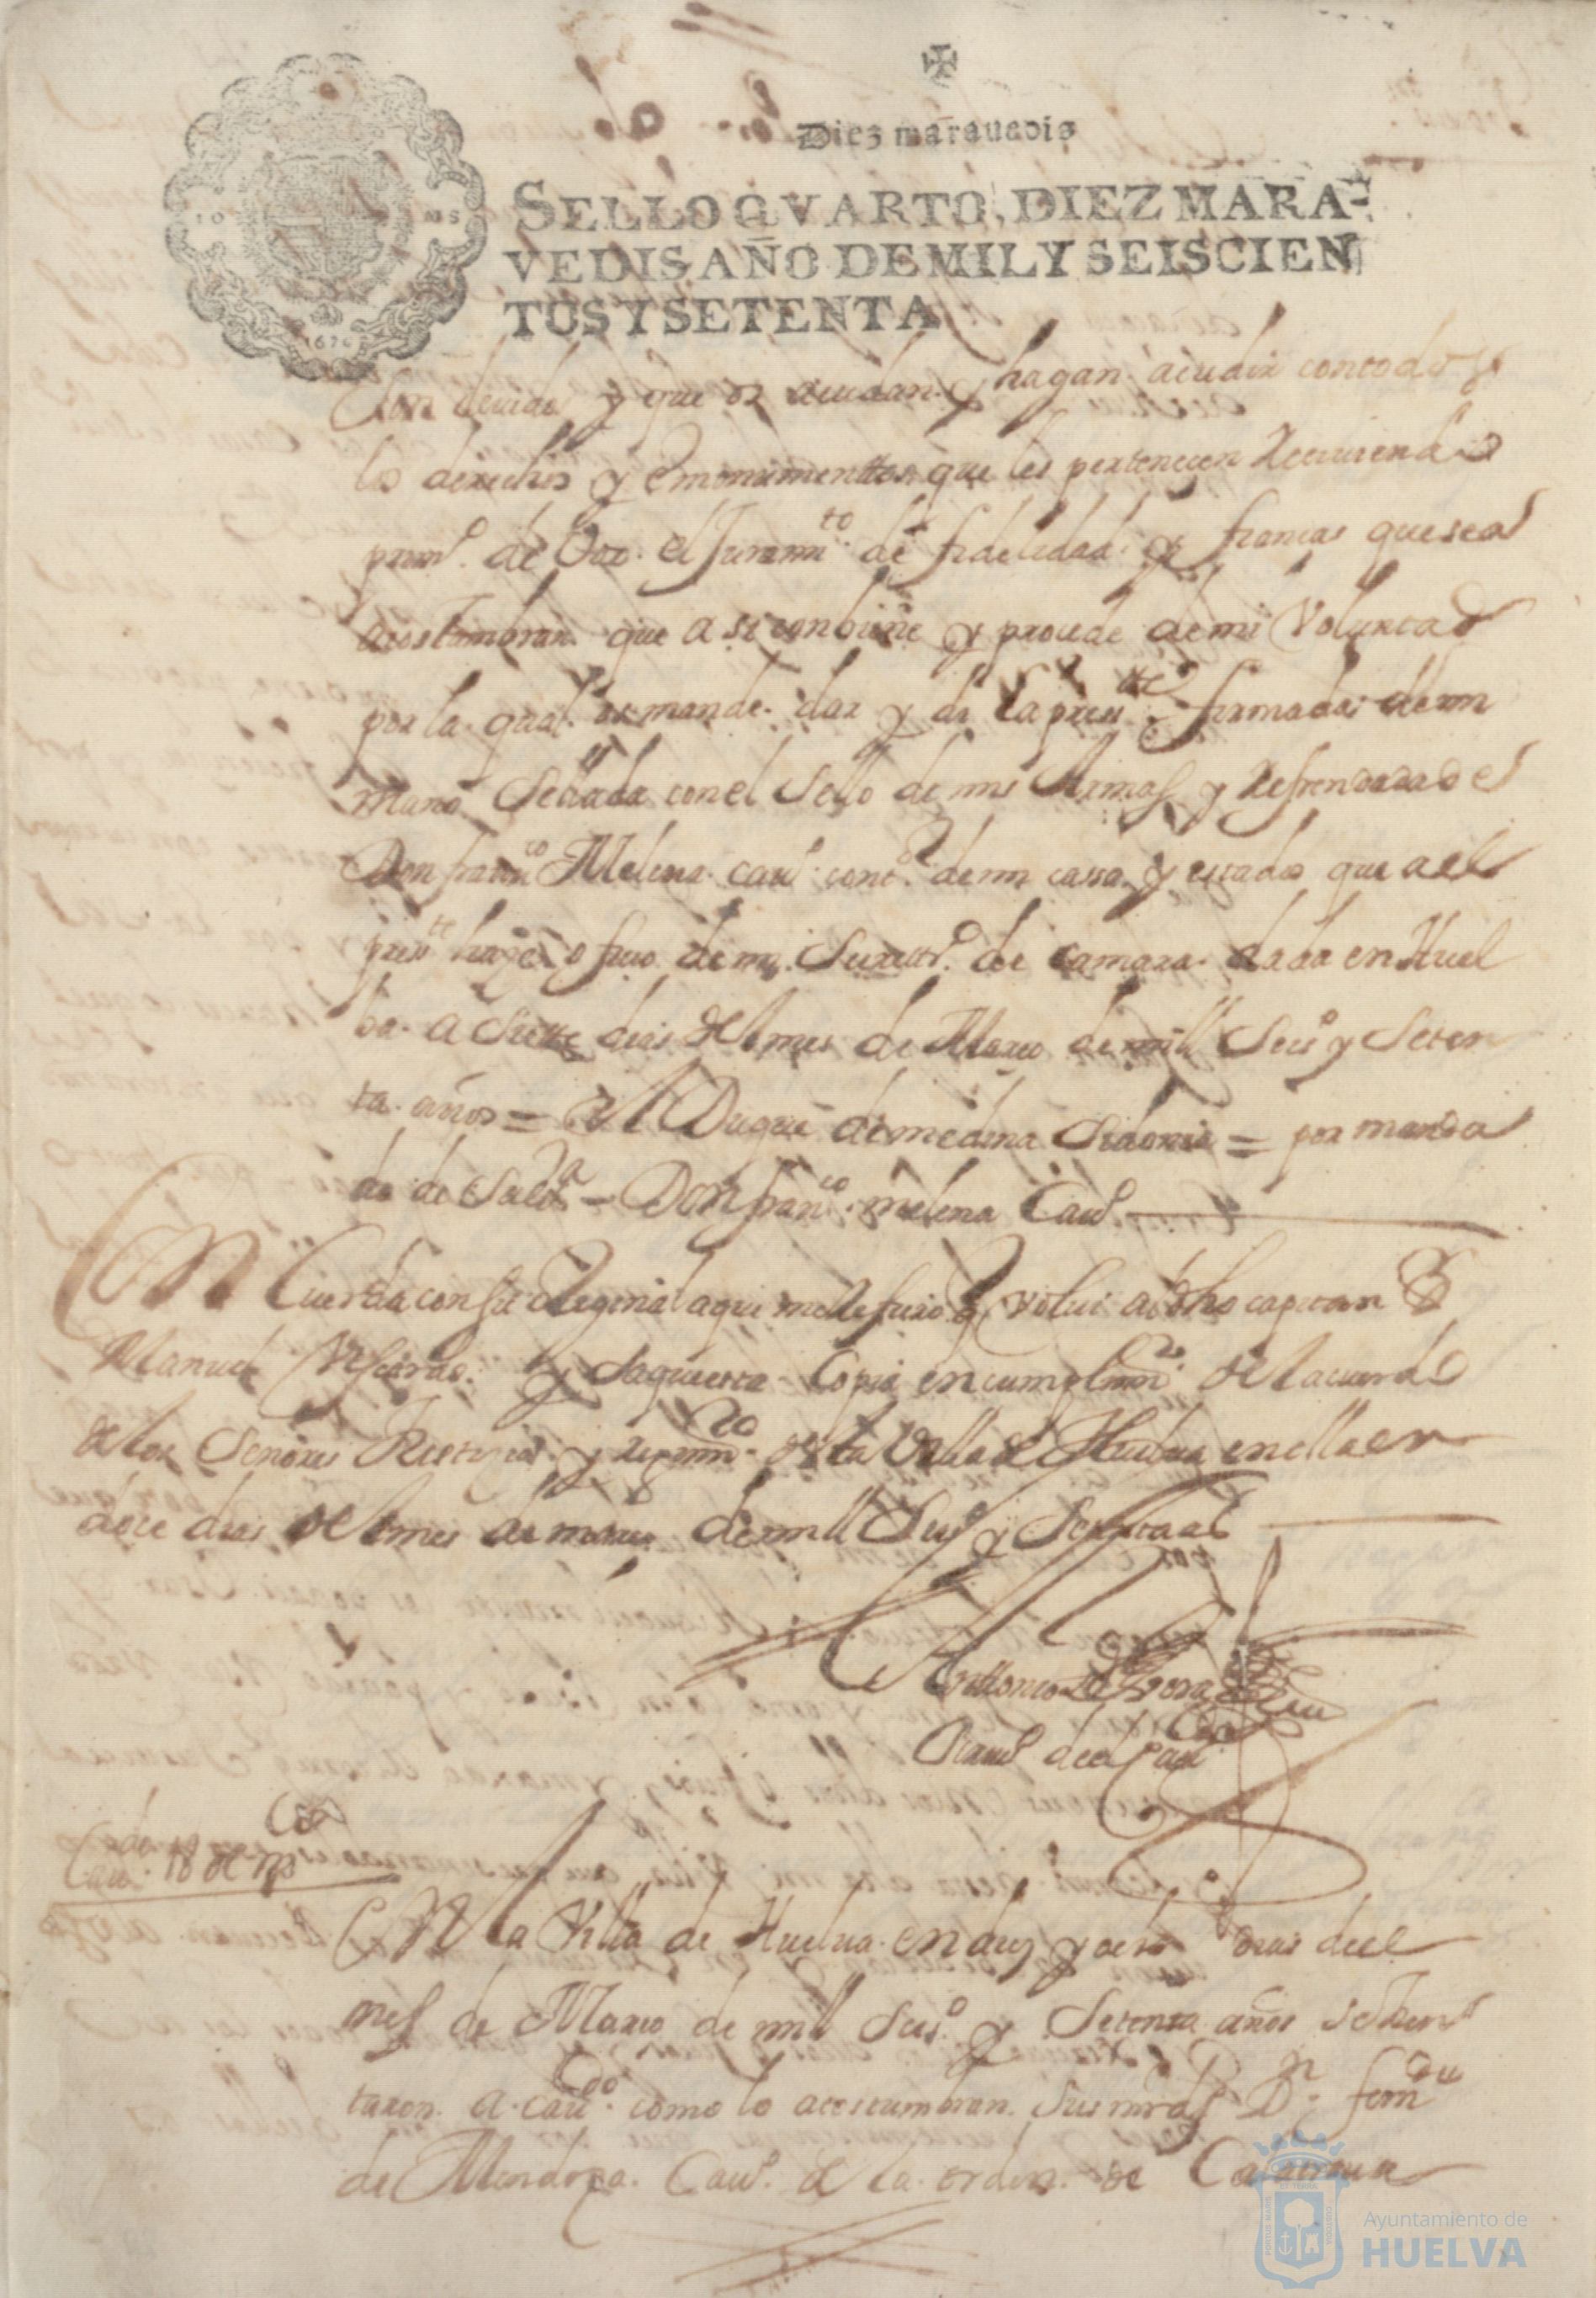 Diez marauadis
SELLO QVARTO, DIEZ MARA-
VEDIS AÑO DE MIL Y SEISCIEN
TOS Y SETENTA
1676
son deuidos y que os acudan y hagan acudir con todos
los derechos y emonumenttos que les pertenecen Receuiendo
primo. de Vos el Juramto. de fidelidad y fianças que se a
acostumbran que a si conbiene y procede de mi Voluntad
por la qual os mande dar y di la presste. firmada de mi
mano Sellada con el Sello de mis Armas y Refrendada del
Don franco. Melena cauo. conto. de mi cassa y estado que a el
preste. haze ofiçio de mi Secretto. de camara dada en Huel
ba a Siette dias del mes de Março de mill Seiso. y Seten
ta años = El Duque de medina Sidonia = por manda
do de Su Exa = Don franco. melena Cauo.
Concuerda con su orijinal a que me refiero q volui a dho capitan D
Manuel y saque esta Copia en cumplimto. del acuerdo
de los Señores Justiçia y regimto. desta Villa de Huelua en ella en
doçe dias del mes de março de mill Seiso. y Setenta as
Anttonio de
Scriuo. del Cauo
Cauo. 18 de mço
En la Villa de Huelua en diez y ocho dias del
mes de Março de mill Seiso. y Setenta años se Jun
taron a cauo. como lo acostumbran sus mrds Dn. ferndo
de Mendoza Cauo. de la orden de Calatraua
Ayuntamiento de
HUELVA